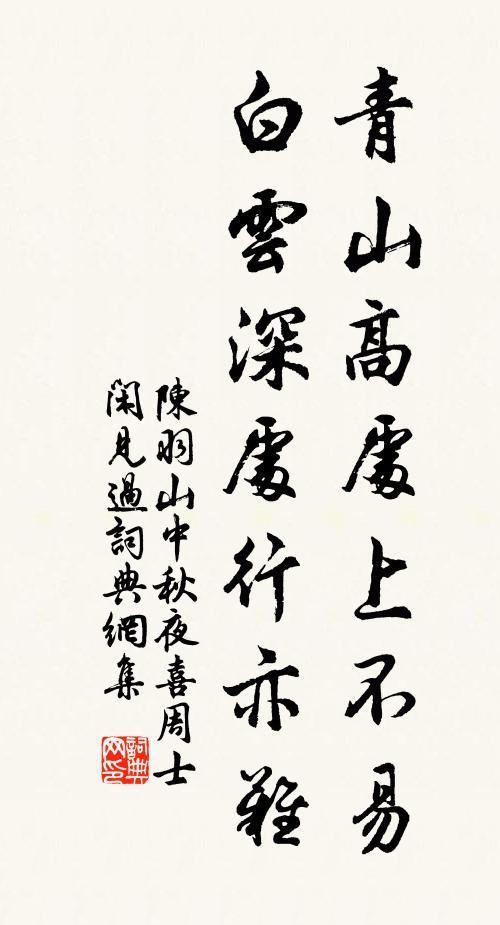 青山高處上不易
白雲深處行亦難
陳羽山中秋夜喜周士
閑見過詞典網集
詞典
网